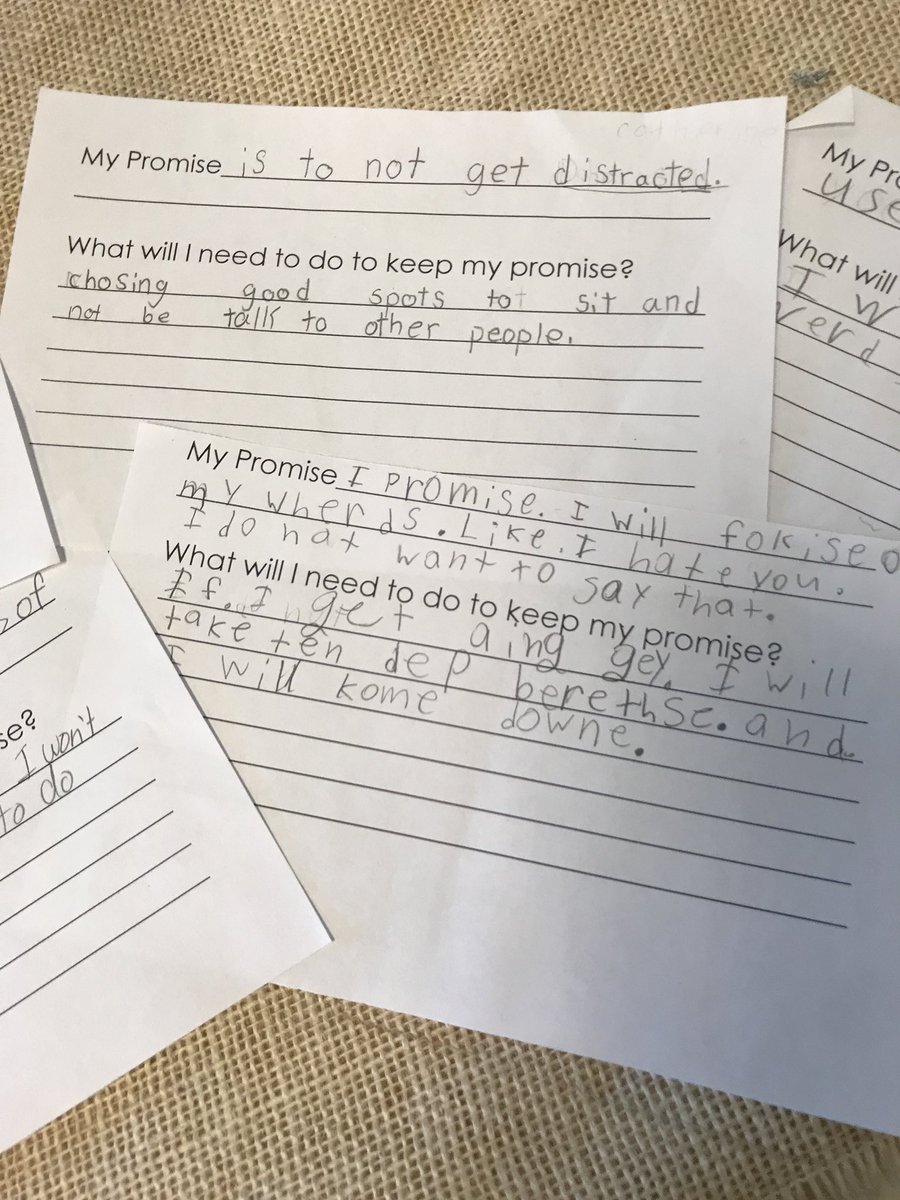 My Promise is to not get distracted.
What will I need to do to keep my promise?
chosing good spots to sit and
not be talk to other people.
My Promise I promise. I will fokise o
my wherds. Like. I hate you.
I do nat want to say that.
What will I need to do to keep my promise?
If. I get aing gey. I will
take ten dep berethse. and.
I will kome downe.
My Pro
use
What will
I w
verd
of
se?
I won't
to do